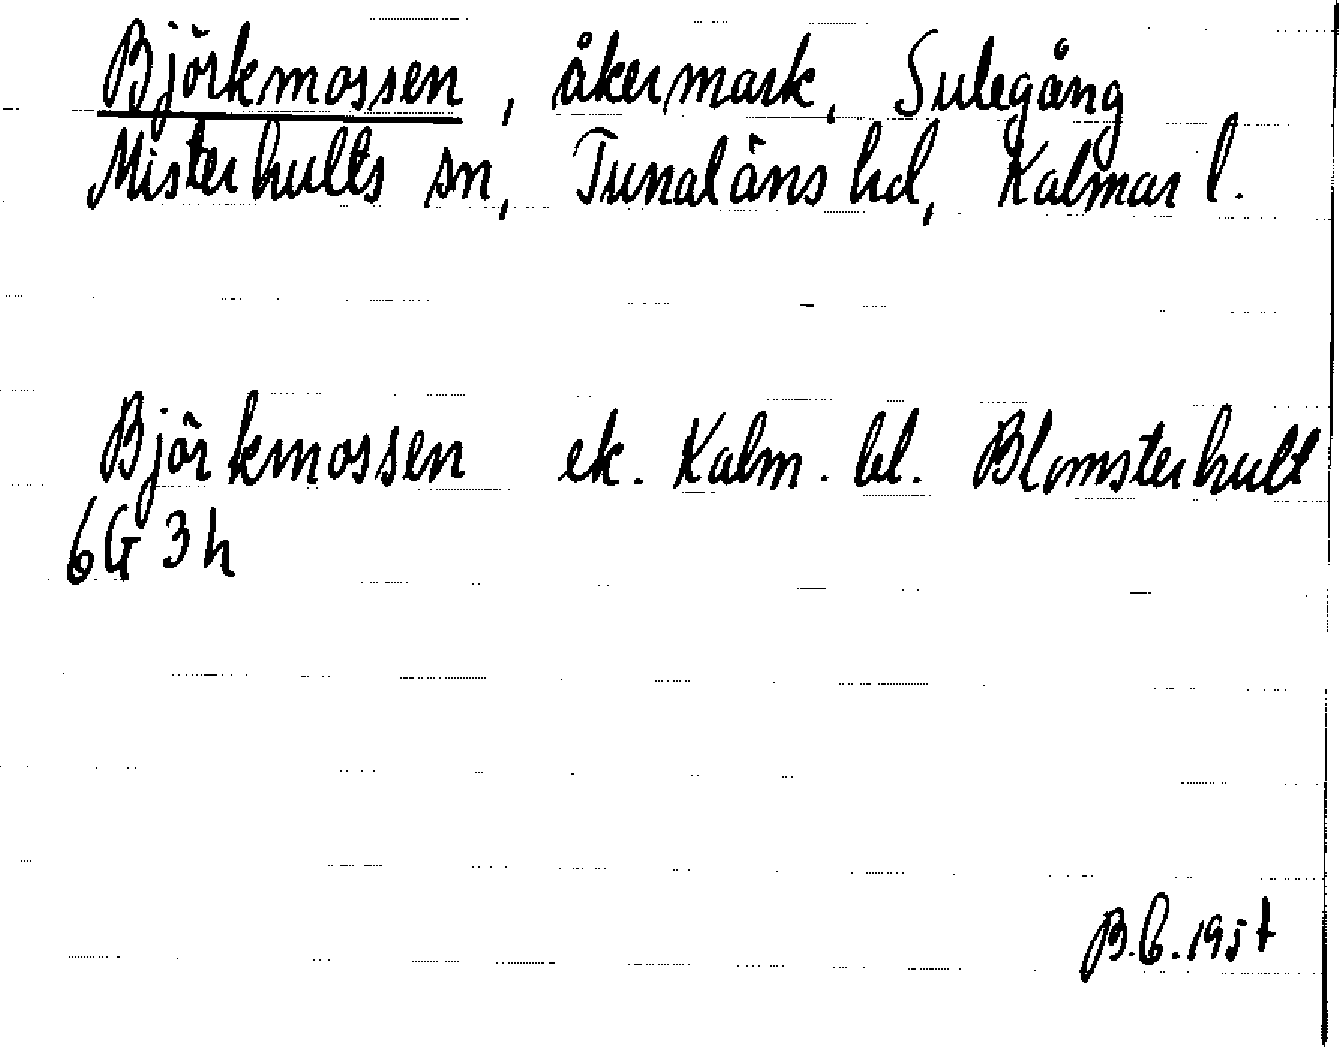 Björkmossen, åkermark, Sulegång
Misterhults sn, Tunaläns hd, Kalmar l.
Björkmossen ek. Kalm. bl. Blomsterhult
6G 3h
B.G. 1957